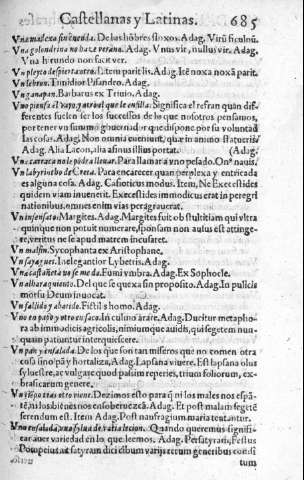 Castellanas y Latinas. 685
Vna madexa sin cuenda. De los hõbres floxos. Adag. Virũ ficulnũ.
Vna golondrina no haze verano. Adag. Vnus vir, nullus vir. Adag.
Vna hirundo non facit ver.
Vn pleyto despierta otro. Item parit lis. Adag. Itẽ noxa noxã parit.
Vn lebron. Timidior Pisandro. Adag.
Vn ganapan. Barbarus ex Triuio. Adag.
Vno piensa el vayo, y otro el que le ensilla. Significa el refran quan dif-
ferentes suelen ser los successos de lo que nosotros pensamos,
por tener vn summo gouernador que dispone por su voluntad
las cosas. Adag. Non omnia eueniunt, quæ in animo statueris.
Adag. Alia Leon, alia asinus illius portat. (Adag.
Vna carraca no le podra lleuar. Para llamar a vno pesado. Onus nauis.
Vn labyrintho de Creta. Para encarecer quan perplexa y entricada
es alguna cosa. Adag. Casioticus modus. Item, Ne Execestides
quidem viam inuenerit. Execestides immodicus erat in peregri
nationibus, omnes enim vias peragrauerat.
Vn insensato. Margites. Adag. Margites fuit ob stultitiam qui vltra
quinque non potuit numerare, sponsam non ausus est attinge-
re, veritus ne se apud matrem incusaret.
Vn malsin. Sycophanta ex Aristophane.
Vn sayagues. Inelegantior Lybetris. Adag.
Vna castañeta no se me da. Fumi vmbra. Adag. Ex Sophocle.
Vn albaraquiento. Del que se quexa sin proposito. Adag. In pullicis
morsu Deum inuocare.
Vn fallido y aburrido. Fictilis homo. Adag.
Vno en papo y otro en saco. In culmo arare. Adag. Ducitur metapho-
ra ab immodicis agricolis, nimiumque auidis, qui segetem nun-
quam patiuntur interquiescere.
Vn pan y ensalada. De los que son tan miseros que no comen otra
cosa sino pã y hortaliza, Adag. Lapsana viuere. Est lapsana olus
syluestre, ac vulgare quod passim reperies, triuio foliorum, ex-
brassicarum genere.
Vn tiẽpo tras otro viene. Dezimos esto para q̃ ni los males nos espã-
tẽ, ni los biẽ nos ensoberuezcã. Adag. Et post malam segetẽ
serendum est. Item Adag. Post naufragium maria tentantur.
Vna ensalada, vna sylua de varia lecion. Quando queremos signifi-
car auer variedad en lo que leemos. Adag. Per satyram, Festus
Pompeius ait satyram dici cibum varijs rerum generibus consi
tum